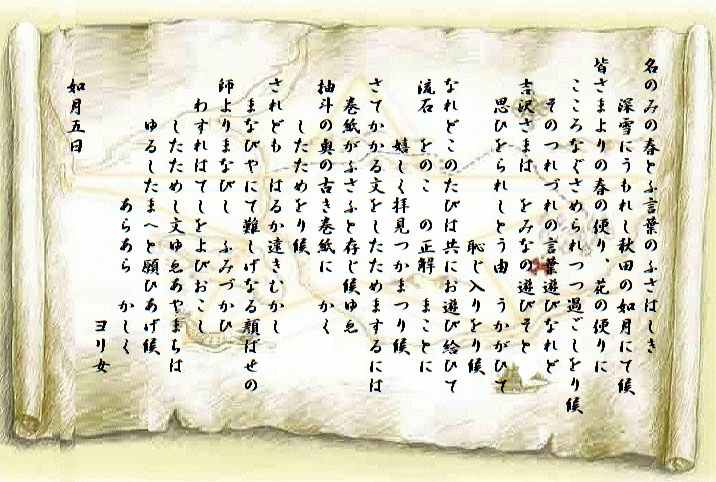 名のみの春とふ言葉のふさはしき
深雪にうもれし秋田の如月にて候
皆さまよりの春の便り、花の便りに
こころなぐさめられつつ過ごしをり候
そのつれづれの言葉遊びなれど
吉沢さまは をみなの遊びぞと
思ひをられしとう由 うかがひて
恥じ入りをり候
なれどこのたびは共にお遊び給ひて
流石 をのこ の正解 まことに
嬉しく拝見つかまつり候
さてかかる文をしたためまするには
巻紙がふさふと存じ候ゆゑ
抽斗の奥の古き巻紙に かく
したためをり候
されども はるか遠きむかし
まなびやにて難しげなる顔ばせの
師よりまなびし ふみづかひ
わすれはてしをよびおこし
したためし文ゆゑあやまちは
ゆるしたまへと願ひあげ候
あらあら かしく
ヨリ女
如月五日